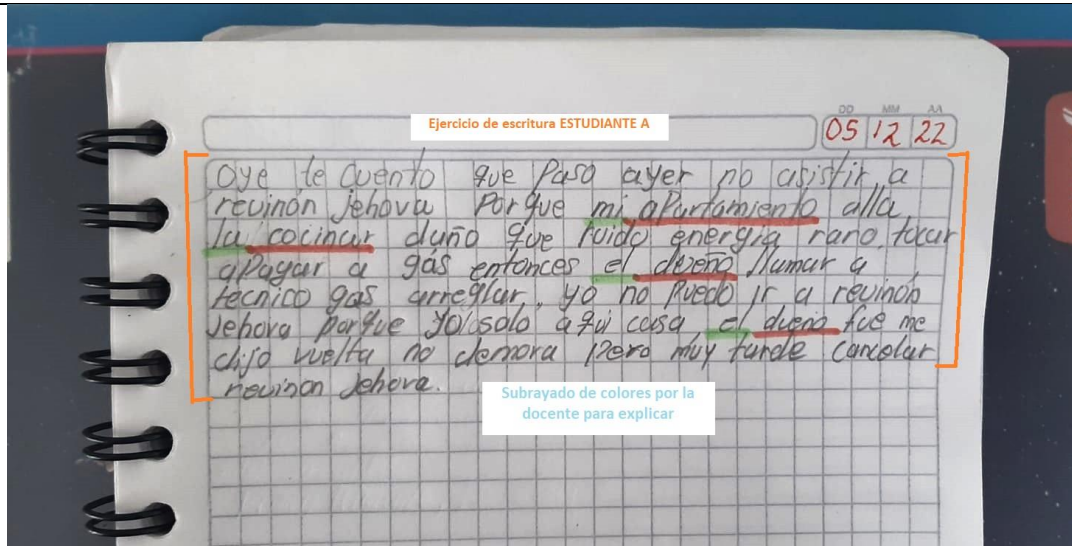 Ejercicio de escritura ESTUDIANTE A
DD MM AA
05 12 22
Oye te cuento que Paso ayer no asistir a
reuinón Jehova Porque mi aPurtamiento alla
la cocinar duño que ruido energía raro, tocar
aPagar a gás entonces el deseño llamar a
tecnico gas arreglar, yo no Puedo ir a reuinón
Jehova porque yo solo aqui casa el dueño fue me
dijo vuelta no demora Pero muy tarde cancelar
reuinon Jehova.
Subrayado de colores por la
docente para explicar